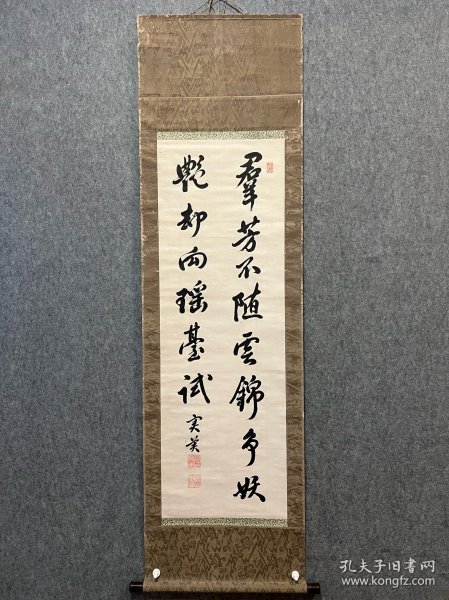 羣芳不随雲錦争妖
艶却向瑶臺試
實美
孔夫子旧书网
www.kongfz.com